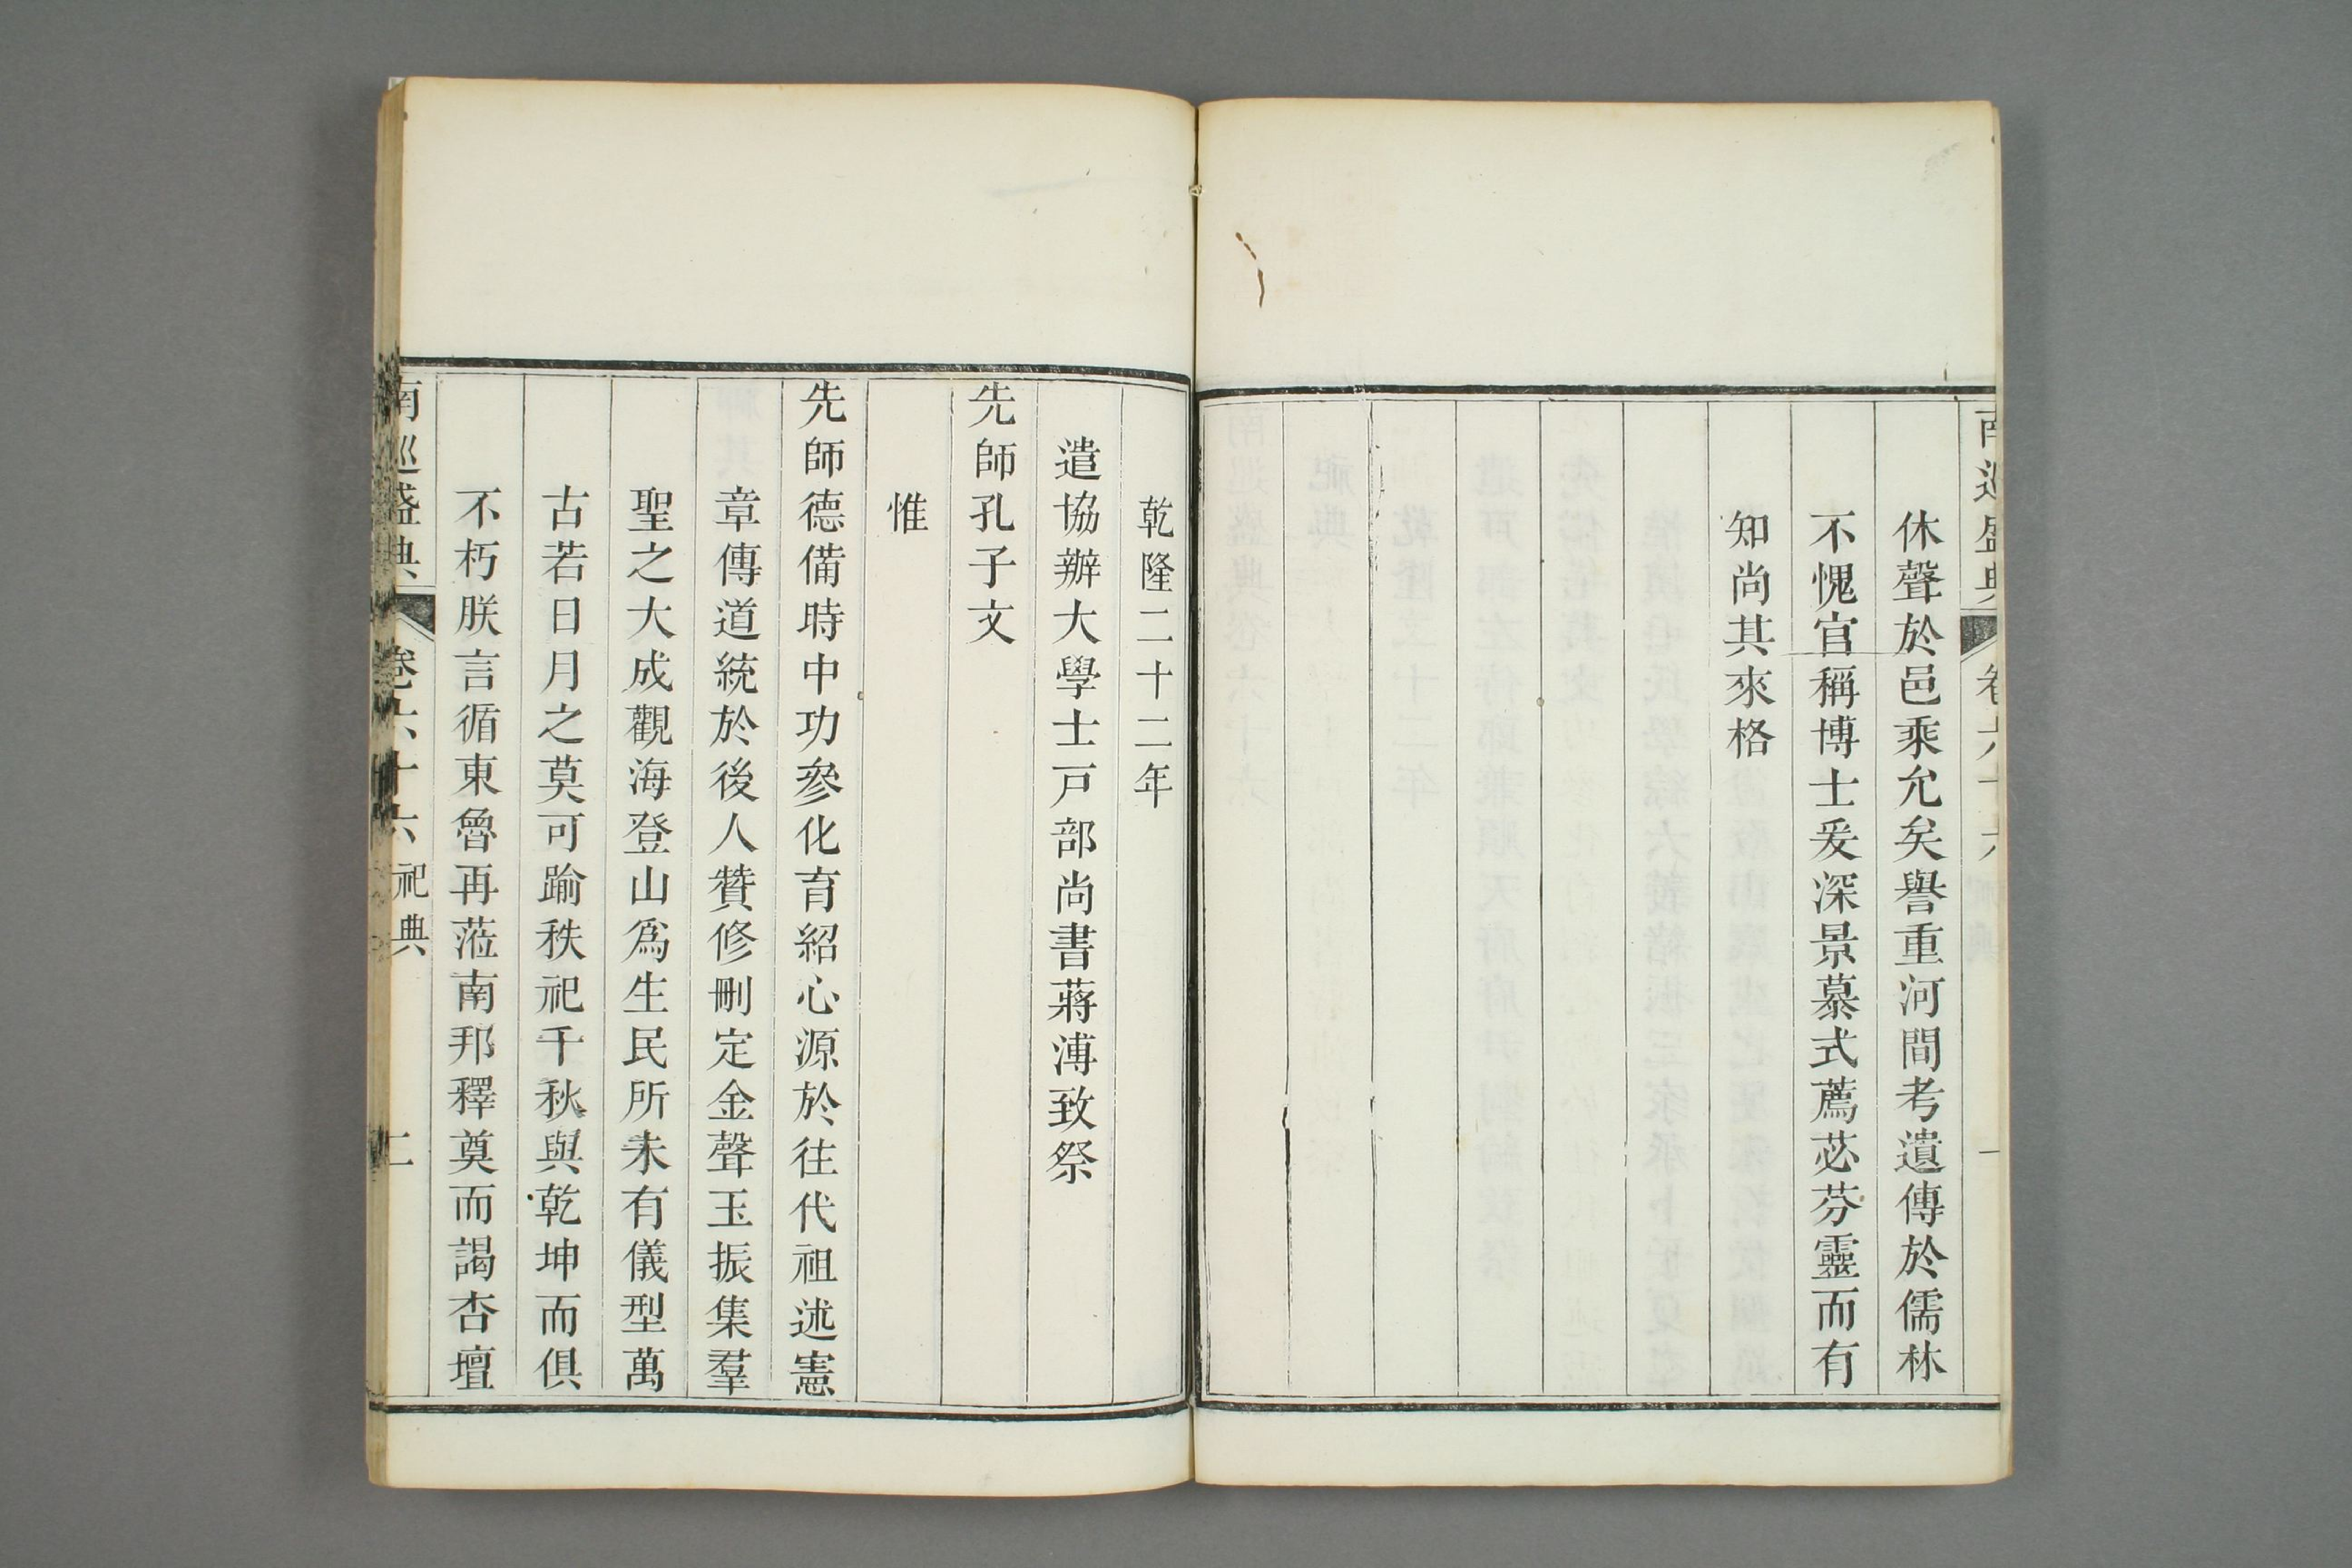 南巡盛典 卷六十六 祀典 一
休聲於邑乘允矣譽重河間考遺傳於儒林
不愧官稱博士爰深景慕式薦苾芬靈而有
知尚其來格
乾隆二十二年
遣協辦大學士戸部尚書蔣溥致祭
先師孔子文
惟
先師德備時中功參化育紹心源於往代祖述憲
章傳道統於後人贊修刪定金聲玉振集羣
聖之大成觀海登山爲生民所未有儀型萬
古若日月之莫可踰秩祀千秋與乾坤而俱
不朽朕言循東魯再蒞南邦釋奠而謁杏壇
南巡盛典 卷六十六 祀典 二